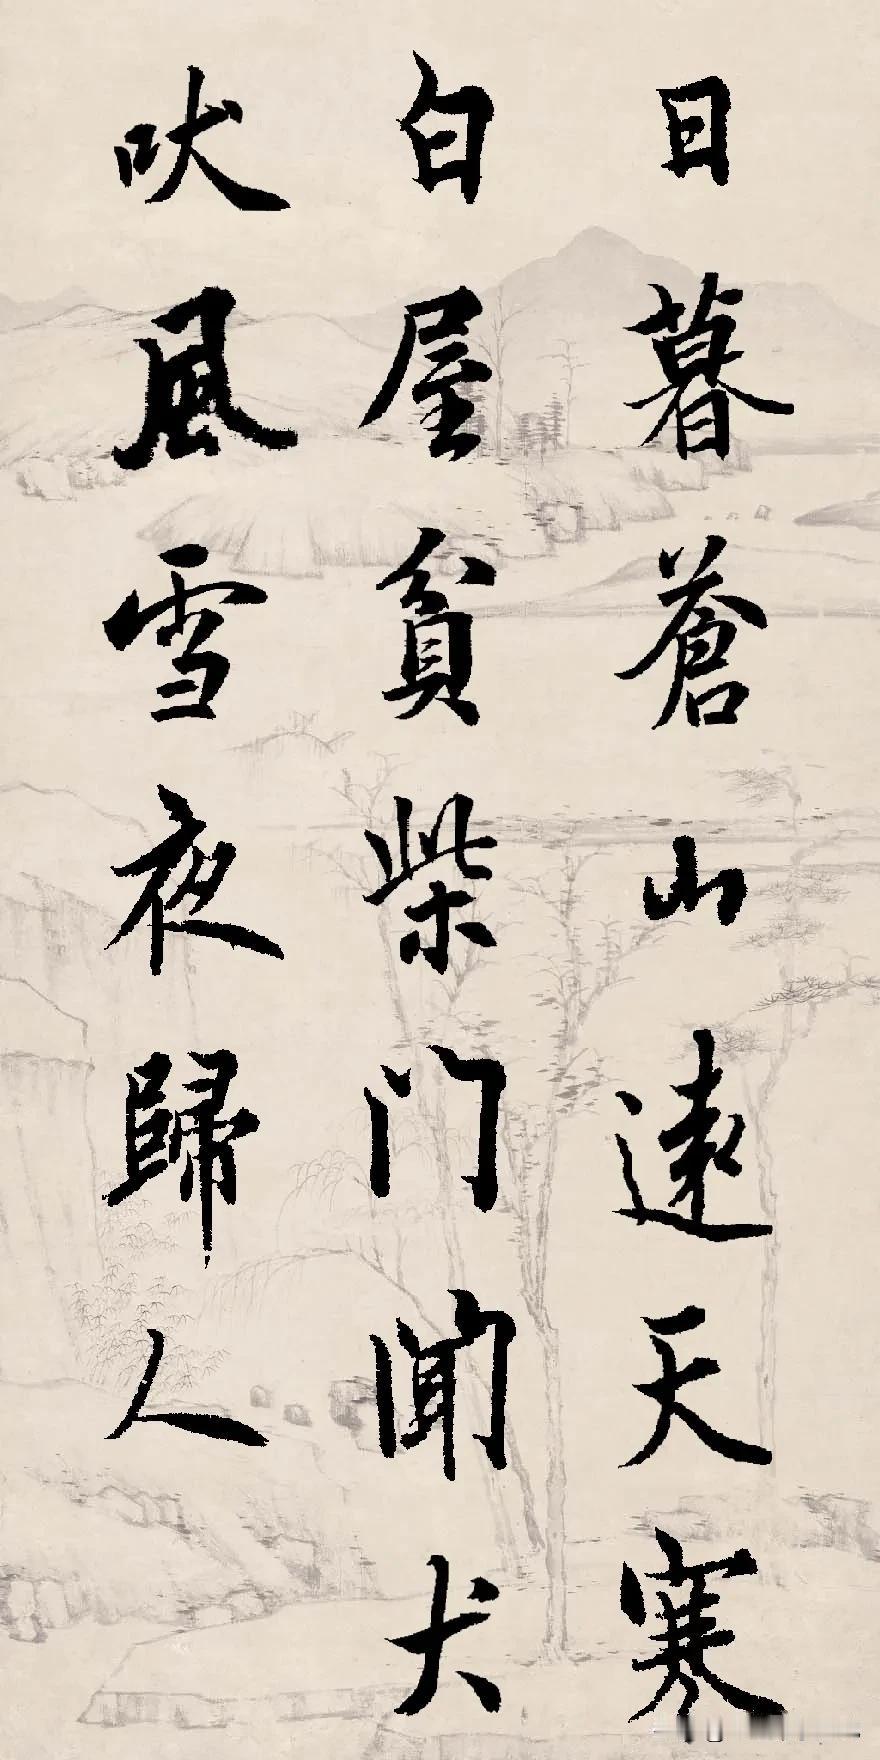 日暮蒼山遠天寒
白屋貧柴门聞犬
吠風雪夜歸人